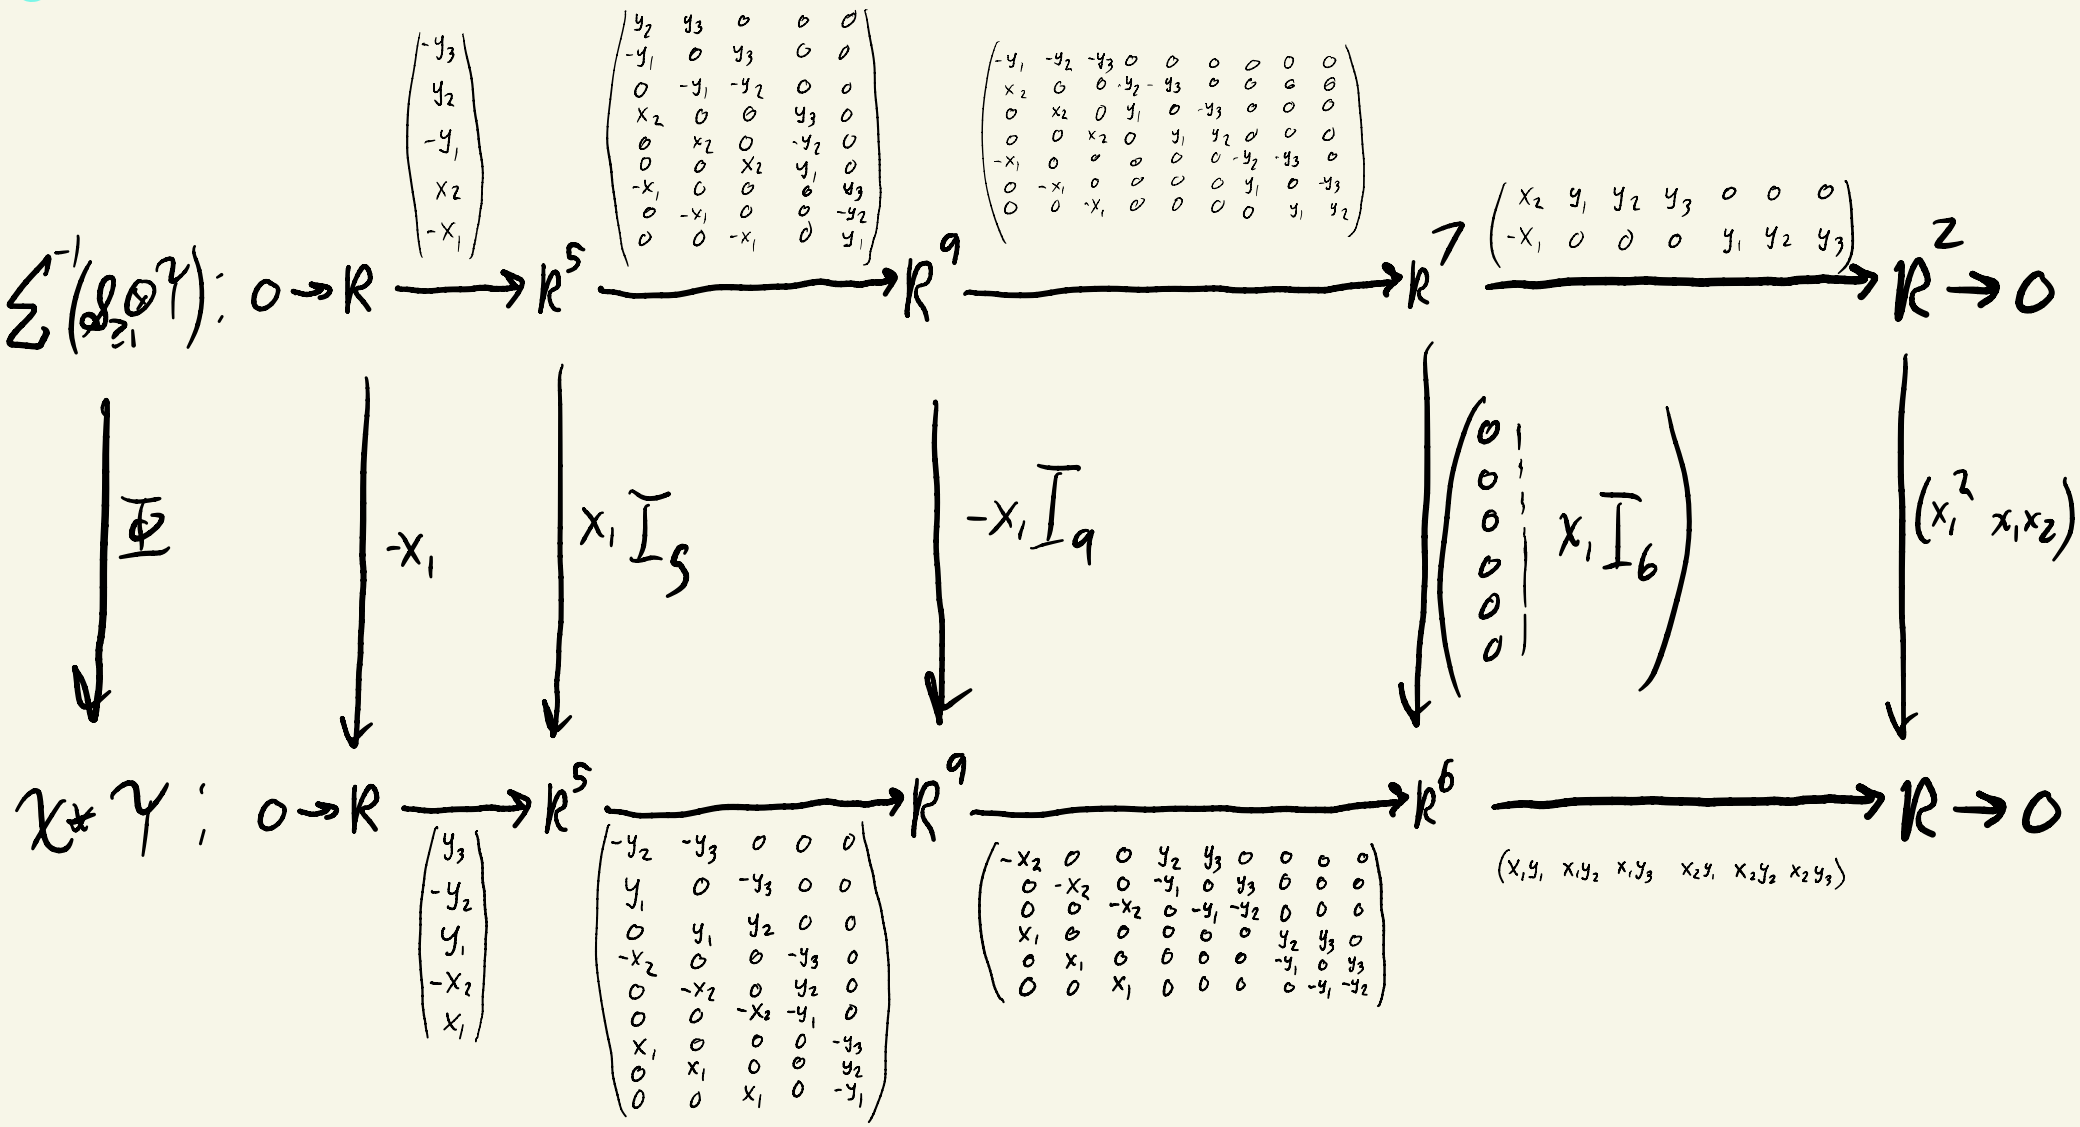 -y₃
y₂
-y₁
x₂
-x₁
y₂ y₃ 0 0 0
-y₁ 0 y₃ 0 0
0 -y₁ -y₂ 0 0
x₂ 0 0 y₃ 0
0 x₂ 0 -y₂ 0
0 0 x₂ y₁ 0
-x₁ 0 0 0 y₃
0 -x₁ 0 0 -y₂
0 0 -x₁ 0 y₁
-y₁ -y₂ -y₃ 0 0 0 0 0 0
x₂ 0 0 -y₂ -y₃ 0 0 0 0
0 x₂ 0 y₁ 0 -y₃ 0 0 0
0 0 x₂ 0 y₁ y₂ 0 0 0
-x₁ 0 0 0 0 0 -y₂ -y₃ 0
0 -x₁ 0 0 0 0 y₁ 0 -y₃
0 0 -x₁ 0 0 0 0 y₁ y₂
x₂ y₁ y₂ y₃ 0 0 0
-x₁ 0 0 0 y₁ y₂ y₃
Σ⁻¹(𝒮≥₁⊗Y): 0 → R → R⁵ → R⁹ → R⁷ → R² → 0
Φ
-x₁
x₁ I₅
-x₁ I₉
0
0
0 x₁ I₆
0
0
0
(x₁² x₁x₂)
X * Y : 0 → R → R⁵ → R⁹ → R⁶ → R → 0
y₃
-y₂
y₁
-x₂
x₁
-y₂ -y₃ 0 0 0
y₁ 0 -y₃ 0 0
0 y₁ y₂ 0 0
-x₂ 0 0 -y₃ 0
0 -x₂ 0 y₂ 0
0 0 -x₂ -y₁ 0
x₁ 0 0 0 -y₃
0 x₁ 0 0 y₂
0 0 x₁ 0 -y₁
-x₂ 0 0 y₂ y₃ 0 0 0 0
0 -x₂ 0 -y₁ 0 y₃ 0 0 0
0 0 -x₂ 0 -y₁ -y₂ 0 0 0
x₁ 0 0 0 0 0 y₂ y₃ 0
0 x₁ 0 0 0 0 -y₁ 0 y₃
0 0 x₁ 0 0 0 0 -y₁ -y₂
(x₁y₁ x₁y₂ x₁y₃ x₂y₁ x₂y₂ x₂y₃)